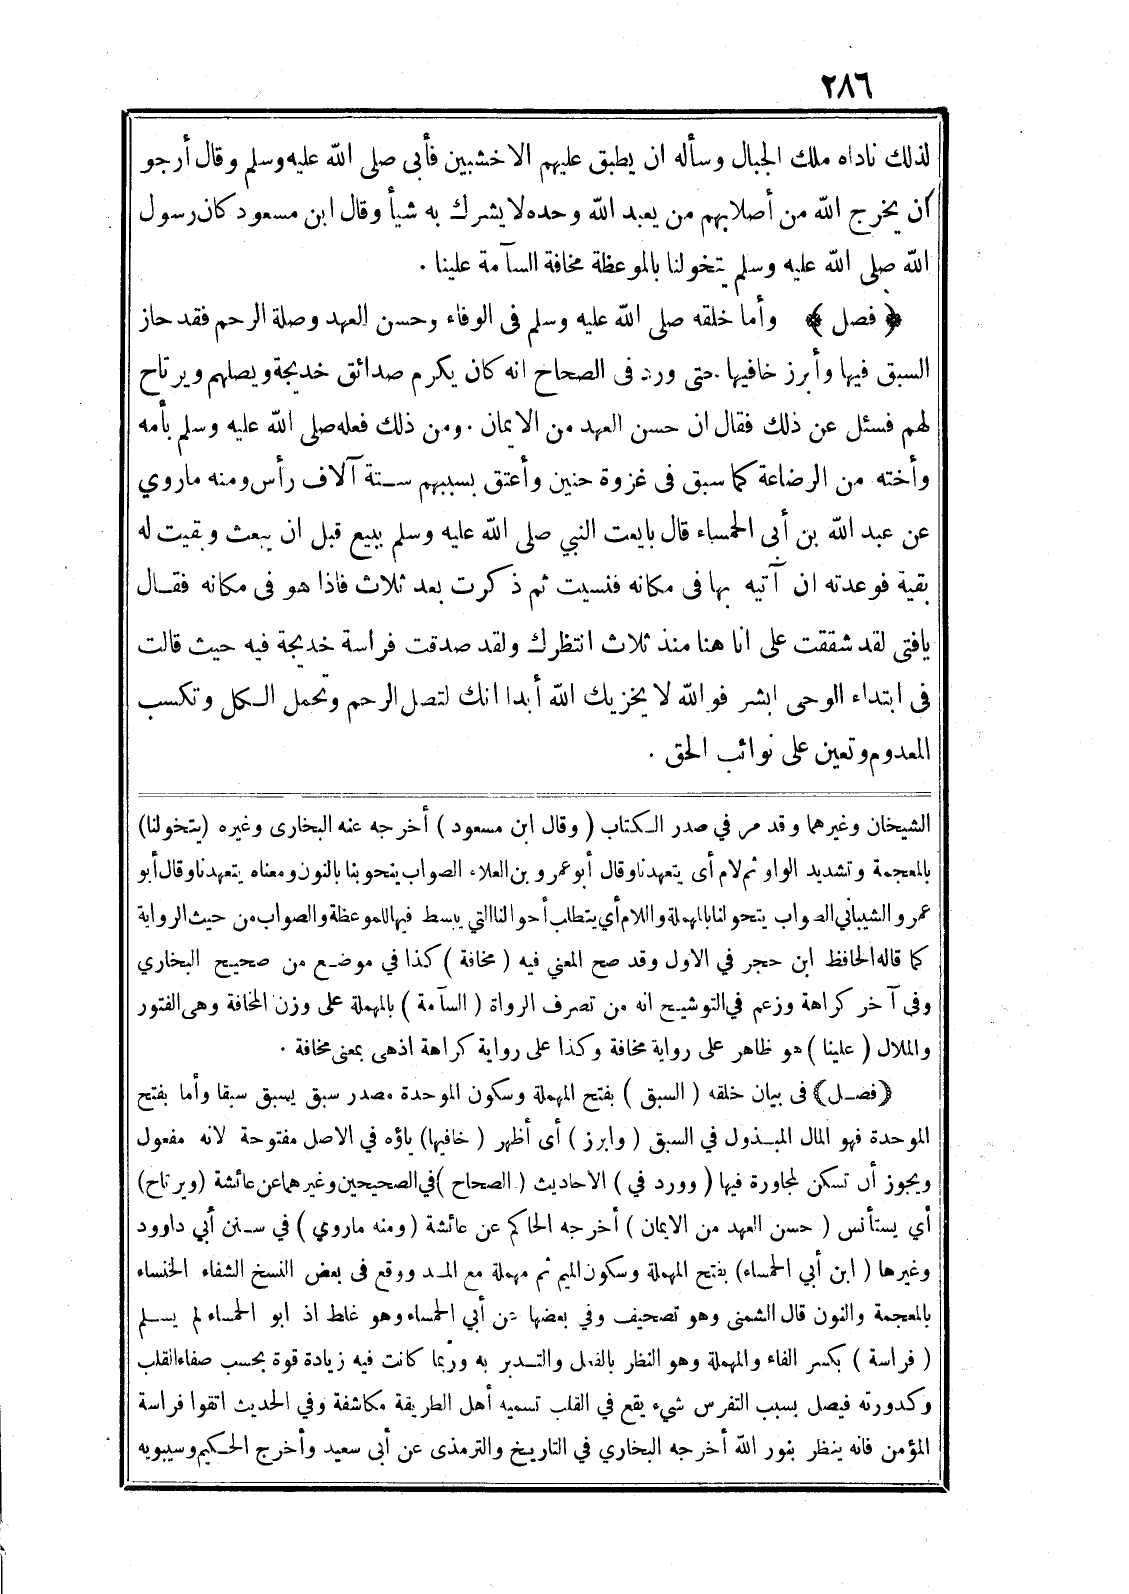 ٢٨٦
لذلك ناداه ملك الجبال وسأله ان يطبق عليهم الاخشبين فأبى صلى الله عليه وسلم وقال أرجو
أن يخرج الله من أصلابهم من يعبد الله وحده لا يشرك به شيأ وقال ابن مسعود كان رسول
الله صلى الله عليه وسلم يتخولنا بالموعظة مخافة السآمة علينا .
﴿ فصل ﴾ وأما خلقه صلى الله عليه وسلم فى الوفاء وحسن العهد وصلة الرحم فقد حاز
السبق فيها وأبرز خافيها حتى ورد فى الصحاح انه كان يكرم صدائق خديجة ويصلهم ويرتاح
لهم فسئل عن ذلك فقال ان حسن العهد من الايمان . ومن ذلك فعله صلى الله عليه وسلم بأمه
وأخته من الرضاعة كما سبق فى غزوة حنين وأعتق بسببهم ستة آلاف رأس ومنه ماروي
عن عبد الله بن أبى الحمساء قال بايعت النبي صلى الله عليه وسلم ببيع قبل ان يبعث وبقيت له
بقية فوعدته ان آتيه بها فى مكانه فنسيت ثم ذكرت بعد ثلاث فاذا هو فى مكانه فقال
يافتى لقد شققت على انا هنا منذ ثلاث انتظرك ولقد صدقت فراسة خديجة فيه حيث قالت
فى ابتداء الوحى ابشر فوالله لا يخزيك الله أبدا انك لتصل الرحم وتحمل الكل وتكسب
المعدوم وتعين على نوائب الحق .
الشيخان وغيرهما وقد مر في صدر الكتاب ( وقال ابن مسعود ) أخرجه عنه البخارى وغيره (يتخولنا)
بالمعجمة وتشديد الواو ثم لام أى يتعهدنا وقال أبو عمرو بن العلاء الصواب يتخوننا بالنون ومعناه يتعهدنا وقال أبو
عمرو الشيباني الصواب يتحولنا بالمهملة واللام أي يتطلب أحوالنا التي يبسط فيها للموعظة والصواب من حيث الرواية
كما قاله الحافظ ابن حجر في الاول وقد صح المعني فيه ( مخافة ) كذا في موضع من صحيح البخاري
وفى آخر كراهة وزعم في التوشيح انه من تصرف الرواة ( السآمة ) بالمهملة على وزن المخافة وهى الفتور
والملال ( علينا ) هو ظاهر على رواية مخافة وكذا على رواية كراهة اذهى بمعنى مخافة .
﴿فصل﴾ فى بيان خلقه ( السبق ) بفتح المهملة وسكون الموحدة مصدر سبق يسبق سبقا وأما بفتح
الموحدة فهو المال المبذول في السبق ( وابرز ) أى أظهر ( خافيها) ياؤه في الاصل مفتوحة لانه مفعول
ويجوز أن تسكن لمجاورة فيها ( وورد في ) الاحاديث ( الصحاح ) في الصحيحين وغيرهما عن عائشة (ويرتاح)
أي يستأنس ( حسن العهد من الايمان ) أخرجه الحاكم عن عائشة ( ومنه ماروي ) في سنن أبي داوود
وغيرها ( ابن أبي الحمساء) بفتح المهملة وسكون الميم ثم مهملة مع المد ووقع فى بعض النسخ الشفاء الخنساء
بالمعجمة والنون قال الشمنى وهو تصحيف وفي بعضها عن أبي الحمساء وهو غلط اذ ابو الحمساء لم يسلم
( فراسة ) بكسر الفاء والمهملة وهو النظر بالفعل والتدبر به وربما كانت فيه زيادة قوة بحسب صفاء القلب
وكدورته فيصل بسبب التفرس شيء يقع في القلب تسميه أهل الطريقة مكاشفة وفي الحديث اتقوا فراسة
المؤمن فانه ينظر بنور الله أخرجه البخاري في التاريخ والترمذى عن أبى سعيد وأخرج الحكيم وسيبويه